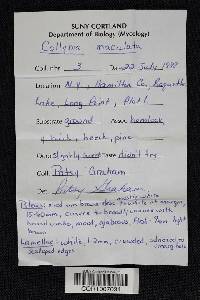 SUNY CORTLAND
Department of Biology (Mycology)
Collybia maculata
Coll. no. 3 Date 22 July 1998
Location N.Y., Hamilton Co., Raquette
Lake, Long Point, Plot 1
Substrate ground near hemlock,
birch, beech, pine
Odor slightly sweet Taste didn't try
Coll. Patsy Graham
Det. Patsy Graham
Pileus: brown disc to white at margin,
15-60mm, convex to broadly convex with
umbo, moist, glabrous flesh light
brown
Lamellae: white, 2mm, crowded, adnexed to
scalloped edges